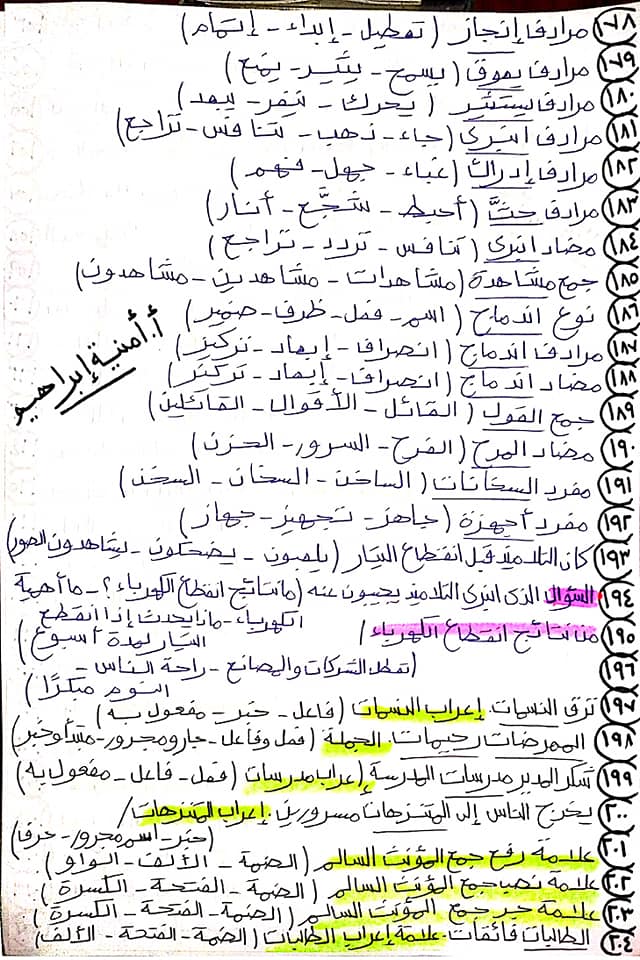 ١٧٨ مرادف إنجاز (تعطيل - إبداء - إتمام)
١٧٩ مرادف يعوق (يسمح - يثير - يمنع)
١٨٠ مرادف يستثير (يحرك - ينفر - يبعد)
١٨١ مرادف انبرى (جاء - ذهب - تنافس - تراجع)
١٨٢ مرادف إدراك (غباء - جهل - فهم)
١٨٣ مرادف حثَّ (أحبط - شجَّع - أنار)
١٨٤ مضاد انبرى (تنافس - تردد - تراجع)
١٨٥ جمع مشاهدة (مشاهدات - مشاهدين - مشاهدون)
١٨٦ نوع اندماج (اسم - فعل - ظرف - ضمير)
١٨٧ مرادف اندماج (انصراف - إبعاد - تركيز)
١٨٨ مضاد اندماج (انصراف - إبعاد - تركيز)
أ. أمنية إبراهيم
١٨٩ جمع القول (القائل - الأقوال - القائلين)
١٩٠ مضاد المرح (الفرح - السرور - الحزن)
١٩١ مفرد السخانات (الساخن - السخان - السخن)
١٩٢ مفرد أجهزة (جاهز - تجهيز - جهاز)
١٩٣ كان التلاميذ قبل انقطاع التيار (يلعبون - يضحكون - يشاهدون الصور)
١٩٤ السؤال الذى انبرى التلاميذ يجيبون عنه (ما نتائج انقطاع الكهرباء؟ - ما أهمية
الكهرباء - ماذا يحدث إذا انقطع
التيار لمدة أسبوع)
١٩٥ من نتائج انقطاع الكهرباء /
١٩٦ (تعطل الشركات والمصانع - راحة الناس -
النوم مبكرًا)
١٩٧ ترق النسمات. إعراب النسمات (فاعل - خبر - مفعول به)
١٩٨ الممرضات رحيمات. الجملة (فعل وفاعل - جار ومجرور - مبتدأ وخبر)
١٩٩ شكر المدير مدرسات المدرسة إعراب مدرسات (فعل - فاعل - مفعول به)
٢٠٠ يخرج الناس إلى المتنزهات مسرورين. إعراب المتنزهات /
(خبر - اسم مجرور - حرف)
٢٠١ علامة رفع جمع المؤنث السالم (الضمة - الألف - الواو)
٢٠٢ علامة نصب جمع المؤنث السالم (الضمة - الفتحة - الكسرة)
٢٠٣ علامة جر جمع المؤنث السالم (الضمة - الفتحة - الكسرة)
٢٠٤ الطالبات فائقات. علامة إعراب الطالبات (الضمة - الفتحة - الألف)